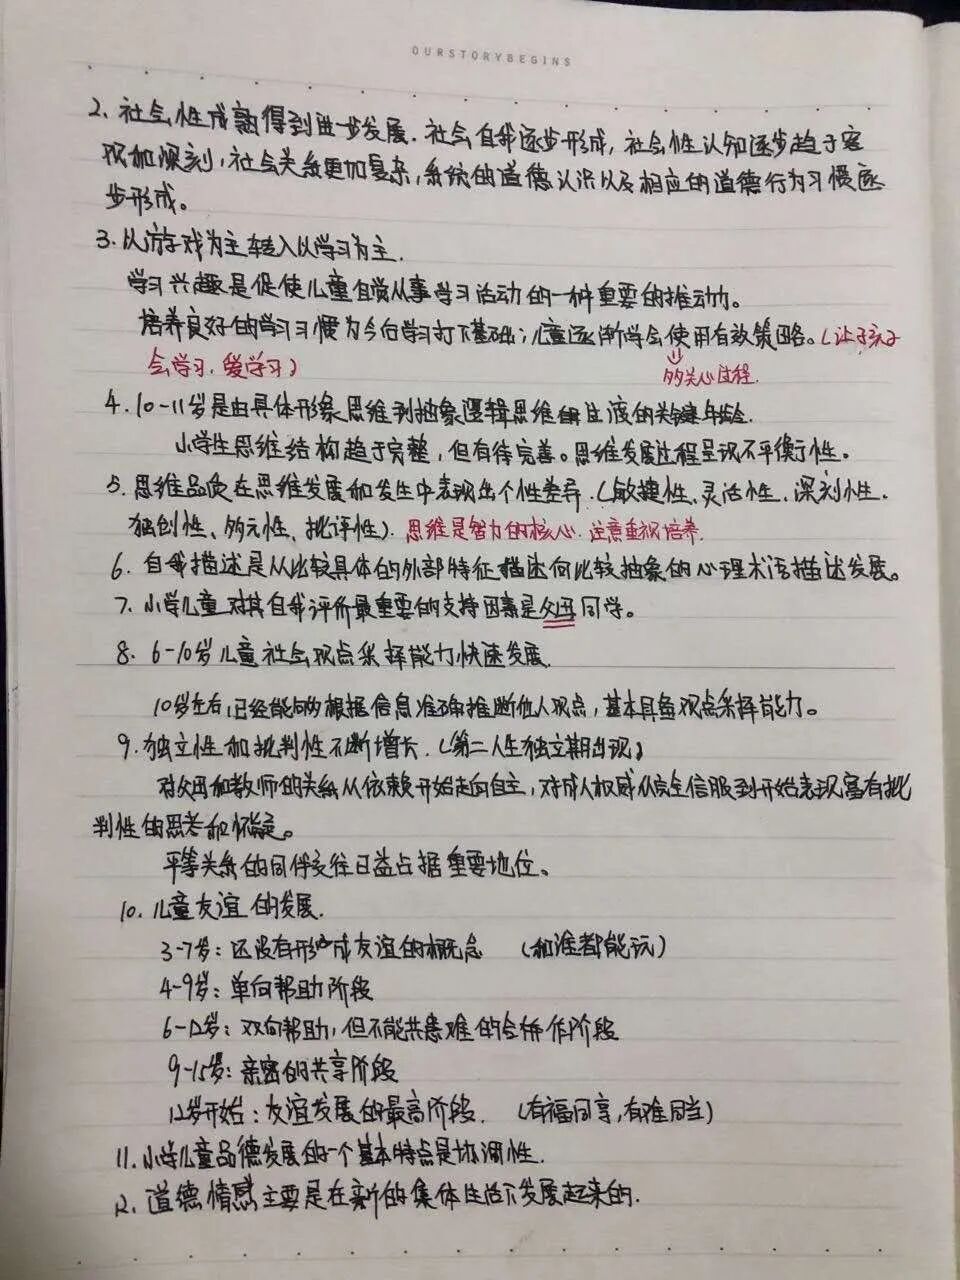 OURSTORYBEGINS
2. 社会性成熟得到进一步发展. 社会自我逐步形成, 社会性认知逐步趋于客
观和深刻, 社会关系更加复杂, 系统的道德认识以及相应的道德行为习惯逐
步形成。
3. 从游戏为主转入以学习为主.
学习兴趣是促使儿童自觉从事学习活动的一种重要的推动力。
培养良好的学习习惯为今后学习打下基础; 儿童逐渐学会使用有效策略。(让孩子
会学习, 爱学习) 的关心过程.
4. 10-11岁是由具体形象思维到抽象逻辑思维的关键年龄.
小学生思维结构趋于完整, 但有待完善。思维发展过程呈现不平衡性。
5. 思维品质在思维发展和发生中表现出个性差异.(敏捷性、灵活性、深刻性、
独创性、多元性、批评性). 思维是智力的核心. 注意重视培养.
6. 自我描述是从比较具体的外部特征描述向比较抽象的心理术语描述发展。
7. 小学儿童对其自我评价最重要的支持因素是父母同学。
8. 6-10岁儿童社会观点采择能力快速发展.
10岁左右, 已经能够根据信息准确推断他人观点, 基本具备观点采择能力。
9. 独立性和批判性不断增长.(第二人生独立期出现)
对父母和教师的关系从依赖开始走向自主, 对成人权威从完全信服到开始表现富有批
判性的思考和怀疑。
平等关系的同伴交往日益占据重要地位。
10. 儿童友谊的发展.
3-7岁: 还没有形成友谊的概念 (和谁都能玩)
4-9岁: 单向帮助阶段
6-12岁: 双向帮助, 但不能共患难的合作阶段
9-15岁: 亲密的共享阶段
12岁开始: 友谊发展的最高阶段. (有福同享, 有难同当)
11. 小学儿童品德发展的一个基本特点是协调性.
12. 道德情感主要是在新的集体生活下发展起来的.